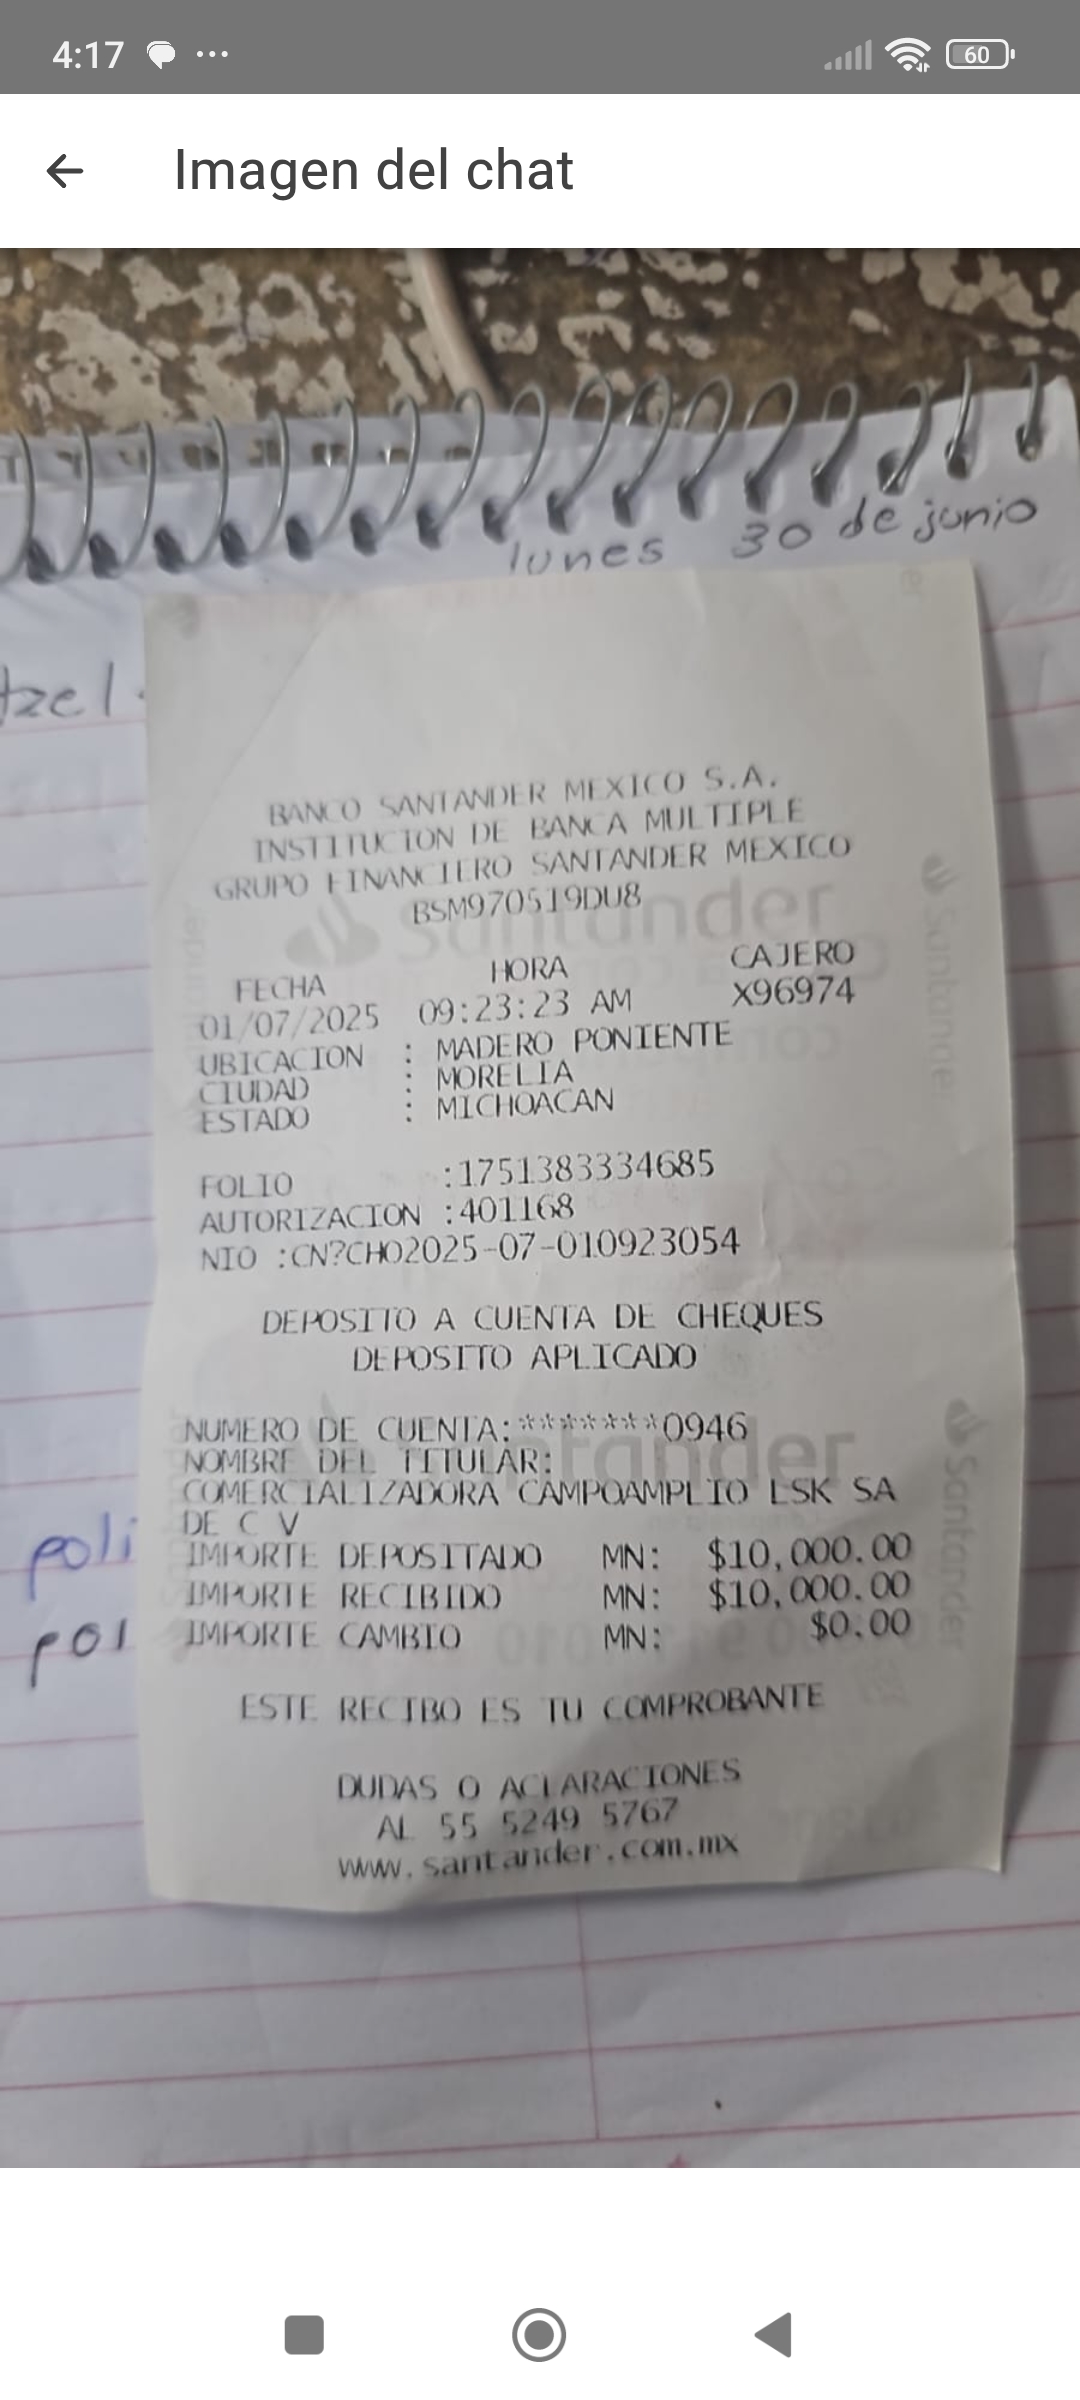 4:17
60
Imagen del chat
lunes 30 de junio
tzel
BANCO SANTANDER MEXICO S.A.
INSTITUCION DE BANCA MULTIPLE
GRUPO FINANCIERO SANTANDER MEXICO
BSM970519DU8
Santander
FECHA HORA CAJERO
01/07/2025 09:23:23 AM X96974
UBICACION : MADERO PONIENTE
CIUDAD : MORELIA
ESTADO : MICHOACAN
FOLIO :1751383334685
AUTORIZACION :401168
NIO :CN?CHO2025-07-010923054
DEPOSITO A CUENTA DE CHEQUES
DEPOSITO APLICADO
NUMERO DE CUENTA:*******0946
NOMBRE DEL TITULAR:
COMERCIALIZADORA CAMPOAMPLIO LSK SA
DE C V
poli
IMPORTE DEPOSITADO MN: $10,000.00
IMPORTE RECIBIDO MN: $10,000.00
pol
IMPORTE CAMBIO MN: $0.00
ESTE RECIBO ES TU COMPROBANTE
DUDAS O ACLARACIONES
AL 55 5249 5767
www.santander.com.mx
Santander
Santander